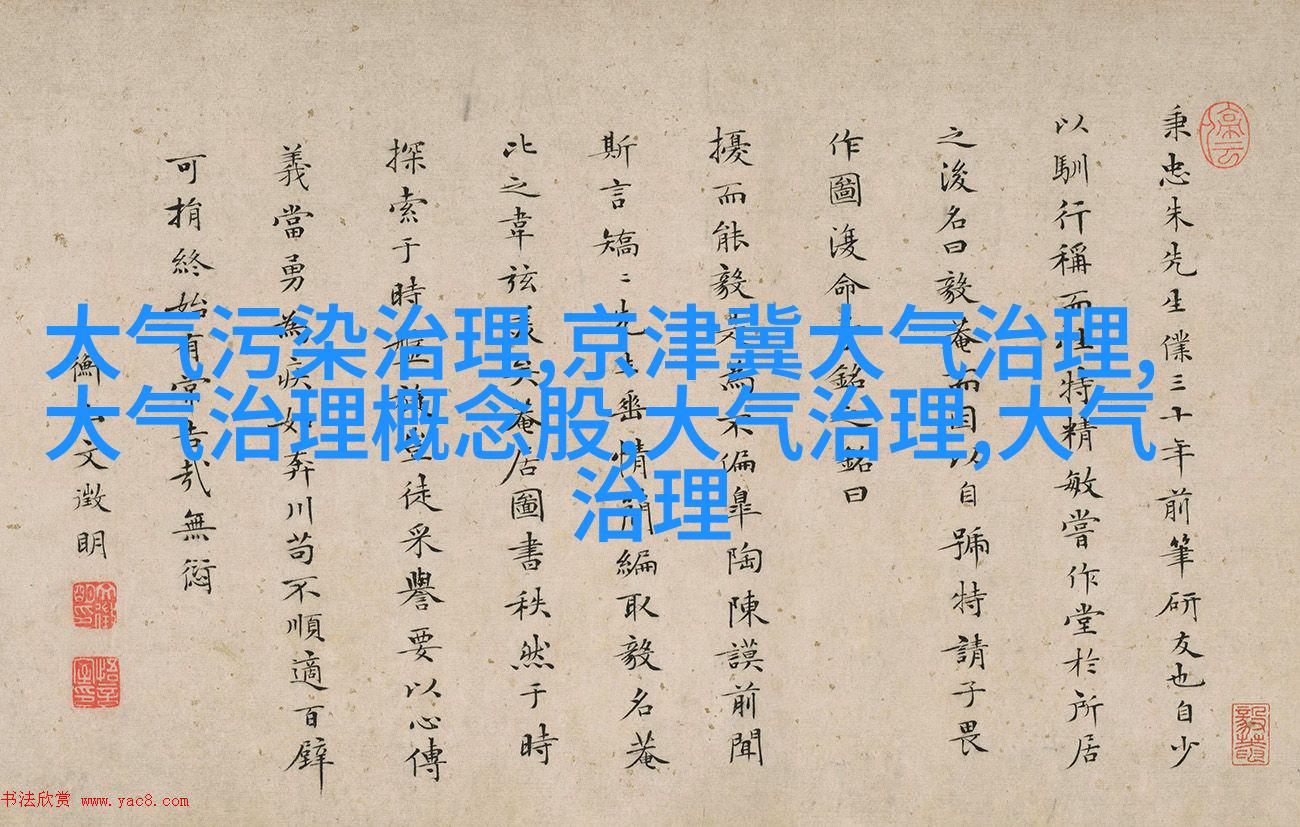 大气污染治理,京津冀大气治理,
大气治理概念股,大气治理,大气
治理
停云
秉忠朱先生僕三十年前筆研友也自少
以馴行稱而性特精敏嘗作堂於所居
之後名曰毅菴而因以自號特請子畏
作圖復命 銘之銘曰
擾而能毅是為不偏皐陶陳謨前聞
斯言矯〻先生 情簡編取毅名菴
比之韋弦美矣菴居圖書秩然于時
探索于時盤 豈徒采譽要以心傳
義當勇為疾如奔川苟不順適百
可捐終始有常吉哉無愆
衡山文徵明
书法欣赏 www.yac8.com